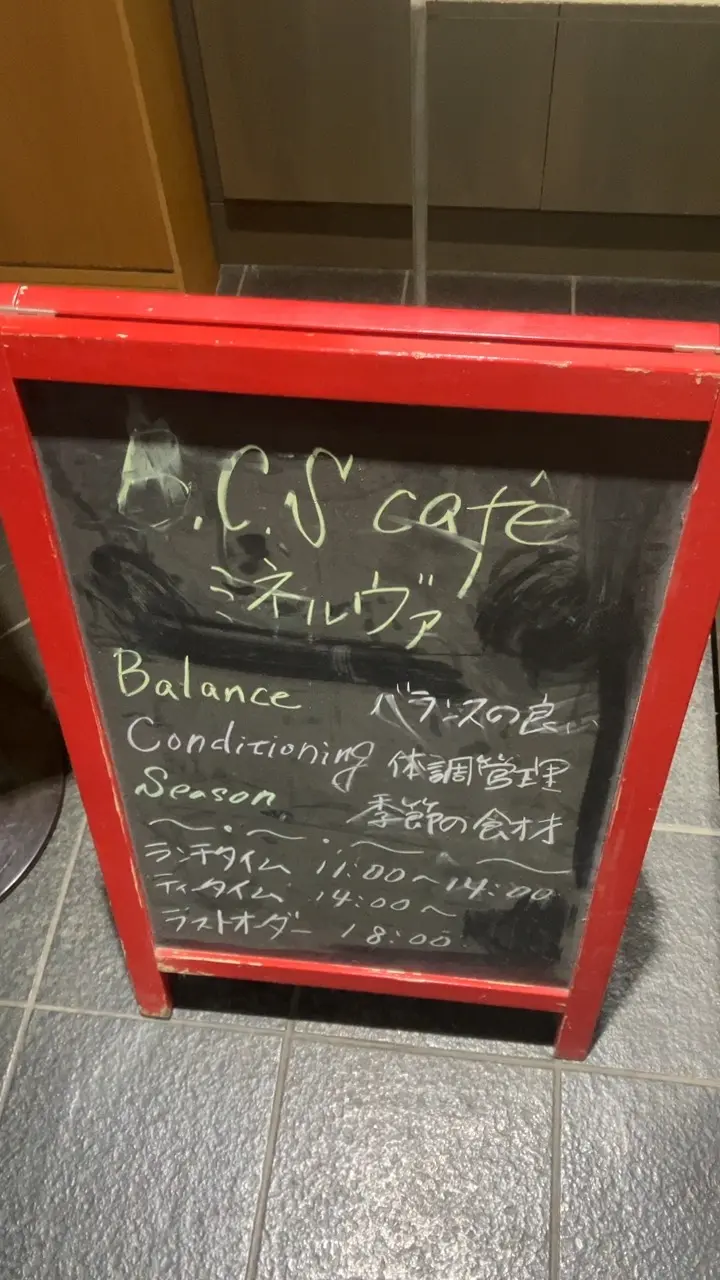 B.C.S cafê
ミネルヴァ
Balance バランスの良い
Conditioning 体調管理
Season 季節の食材
〜・〜・〜・〜
ランチタイム 11:00〜14:00
ティータイム 14:00〜
ラストオーダー 18:00